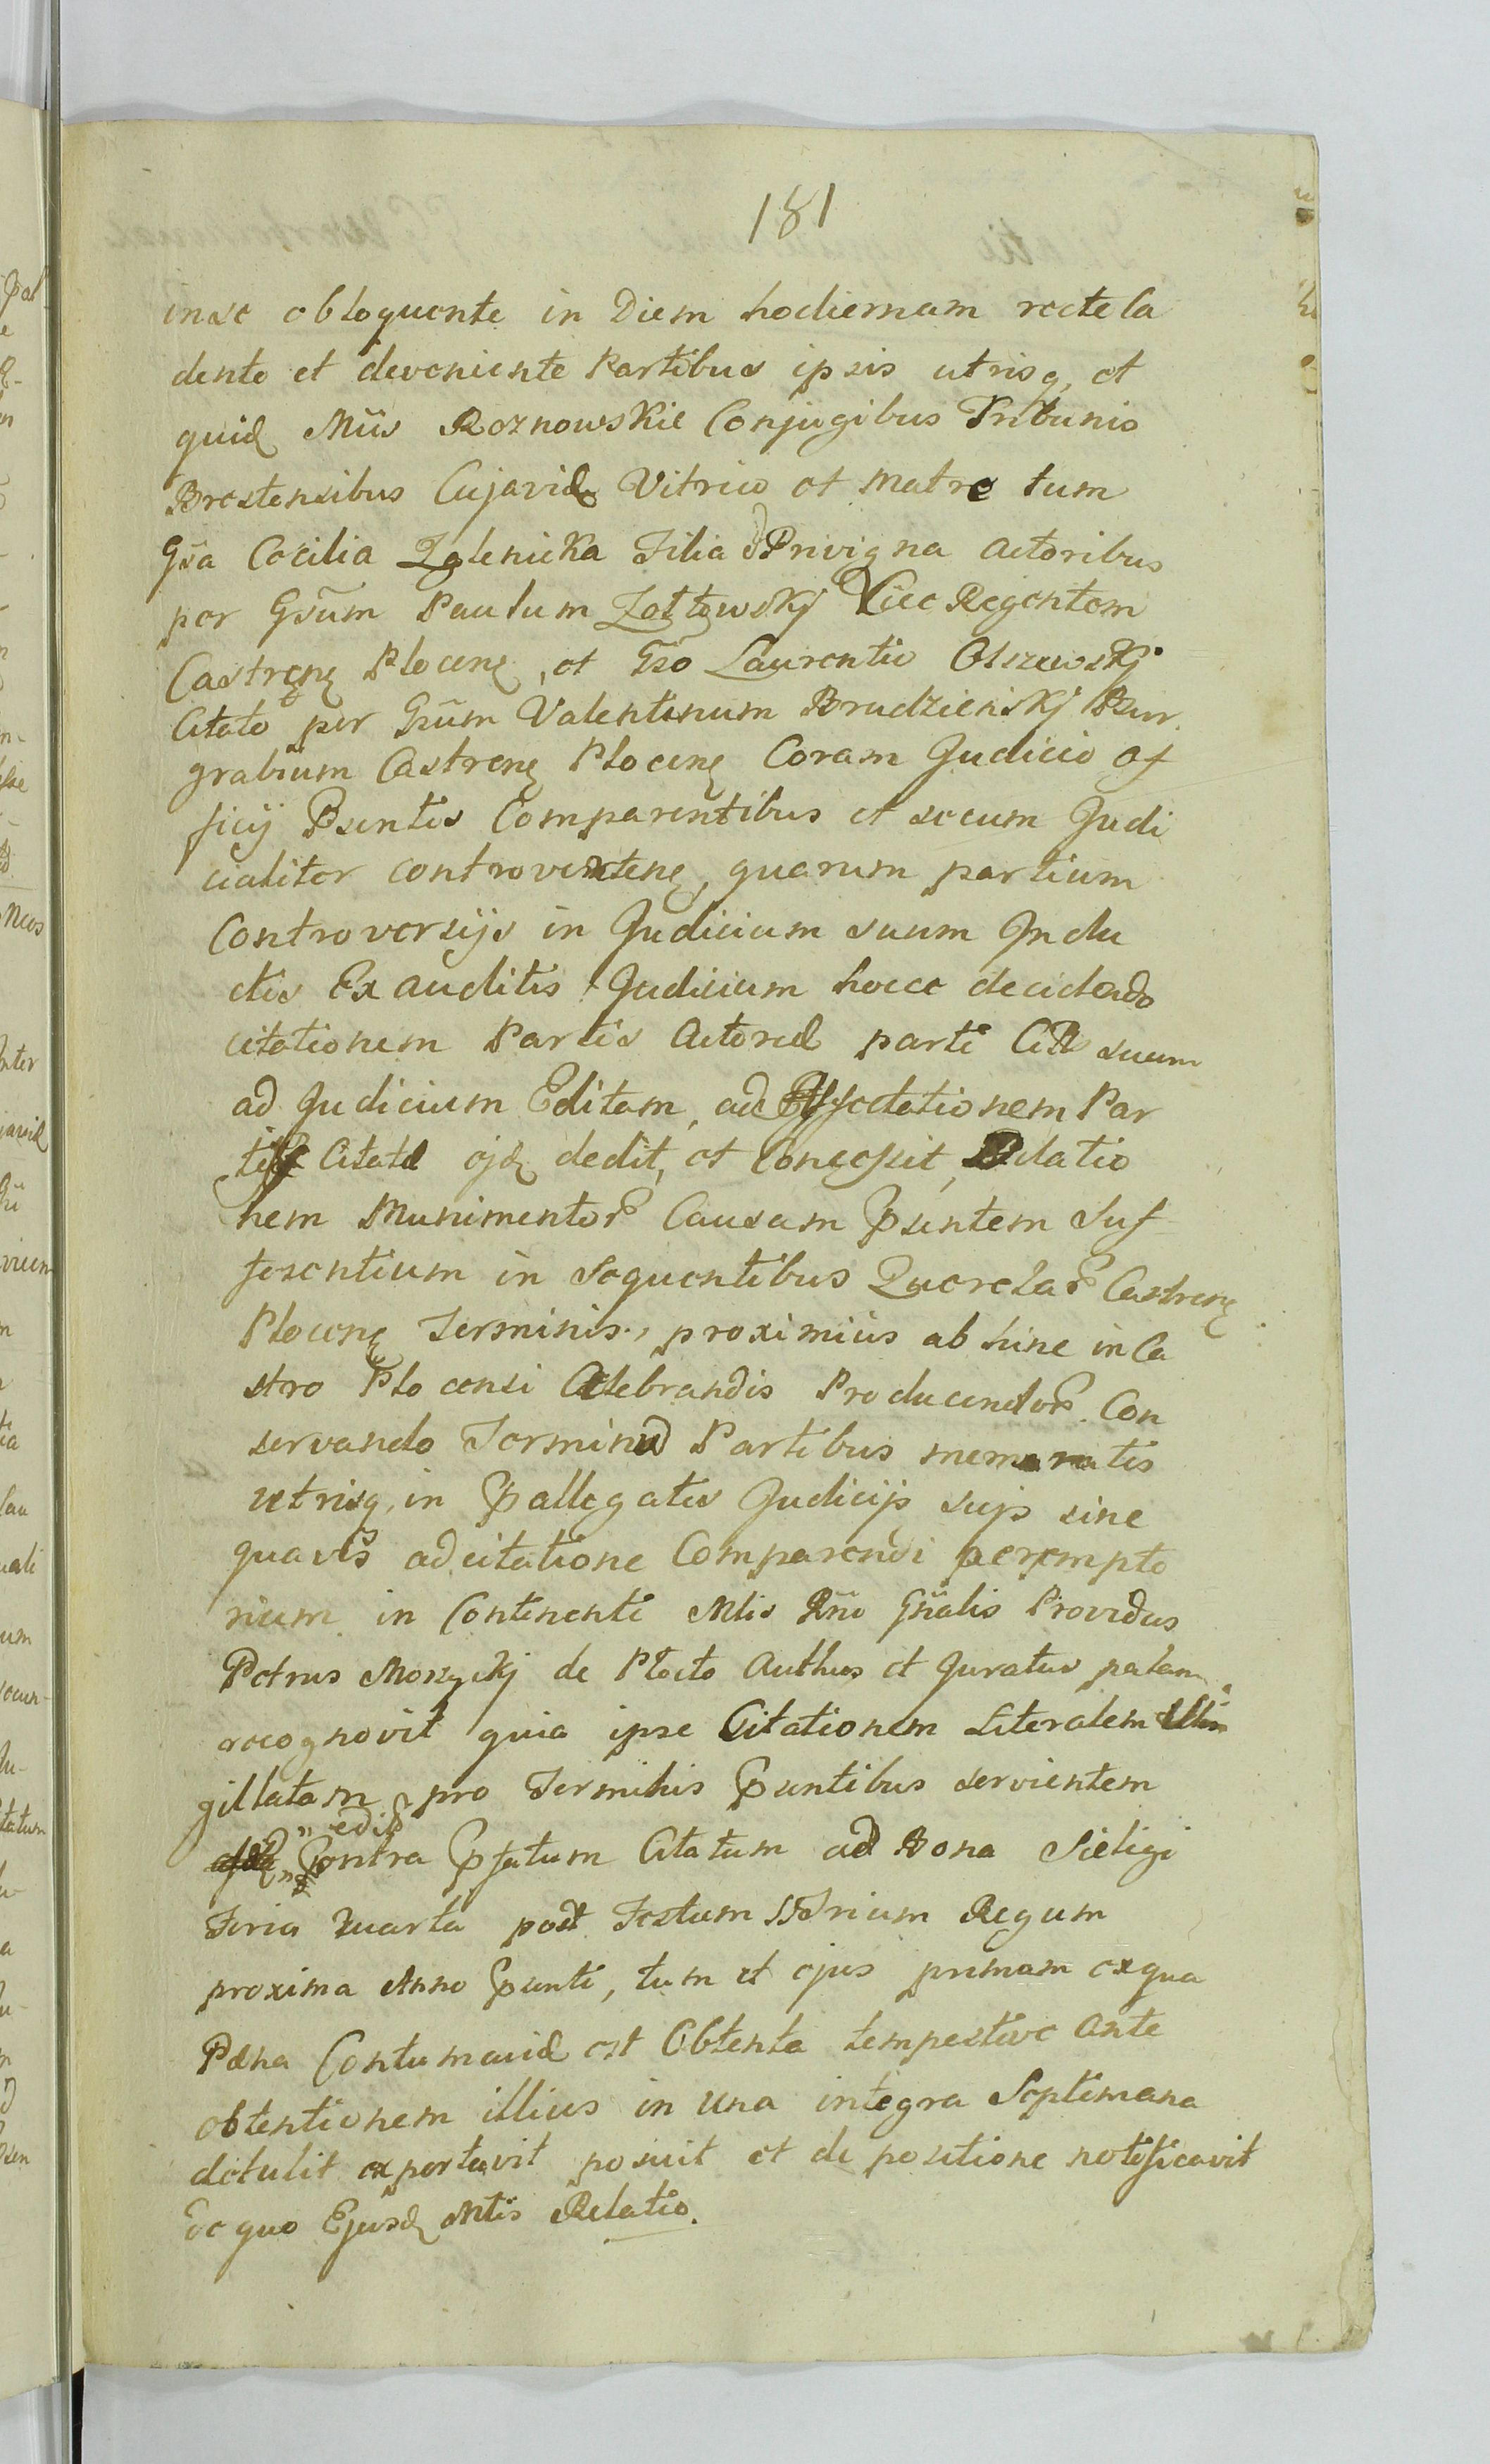 181
inse obloquente in Diem hodiernam recte ca
dente et deveniente Partibus ipsis utrisq, et
quid Mūs Roznowskie Conjugibus Tribunis
Brestensibus Cujaviæ Vitrico et Matre tum
Gsa Cæcilia Zalenicka Filia Privigna Actoribus
per Gsūm Paulum Zołtowskj Vice Regentem
Castren Plocen, et Gso Laurentio Olszewskj
Citato per Gsūm Valentinum Brudzienskj Bur
grabium Castren Plocen Coram Judicio of
ficij Psentis Comparentibus et secum Judi
cialiter controverten, quarum partium
Controversijs in Judicium suum Indu
ctis Exauditis Judicium hocce decidendo
citationem Partis Actoreæ parti Cittæ suum
ad Judicium Editam, ad Affectationem Par
tis Citatæ ejd dedit, et Concessit, Dilatio
nem Munimentor Causam Psentem Suf
ferentium in Sequentibus Querelar Castren
Plocen Terminis, proximius abhinc in Ca
stro Plocensi Celebrandis Producendor. Con
servando Terminū Partibus memoratis
utrisq, in Pallegatis Judicijs sujs sine
quavis adcitatione Comparendi perempto
rium in Continenti Mtis Rnū Gñalis Providus
Petrus Moszyckj de Płocko Authus et Juratus palam
recognovit quia ipse Citationem Literalem
gillatam pro Terminis Psentibus servientem
edit
Contra Pfatum Citatum ad Bona Sieligi
Feria Quarta post Festum SSTrium Regum
proxima Anno Psenti, tum et ejus primam exqua
Pæna Contumaciæ est Obtenta tempestive Ante
obtentionem illius in Una integra Septimana
detulit exportavit posuit et de positione notificavit
de quo Ejusd Mtis Relatio.